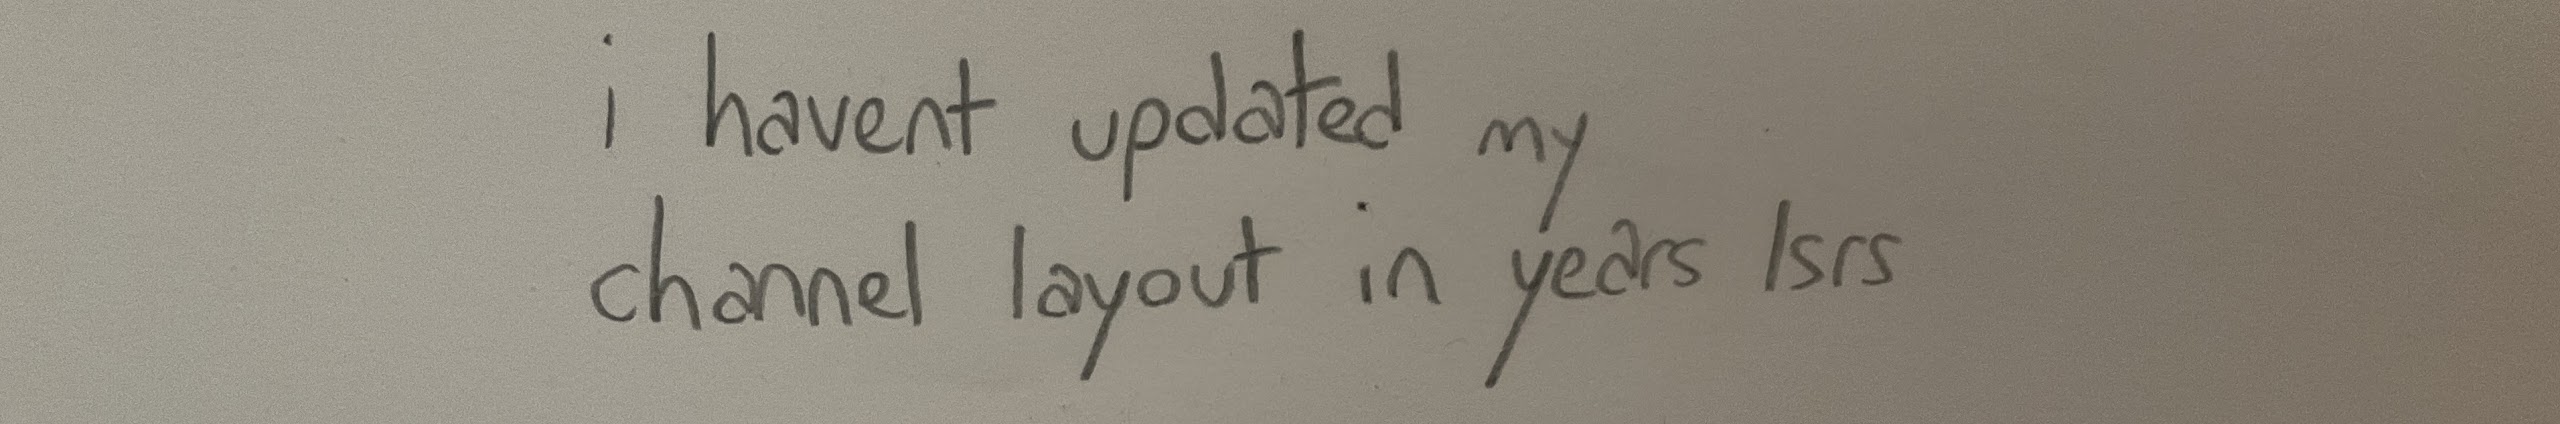 i havent updated my
channel layout in years /srs